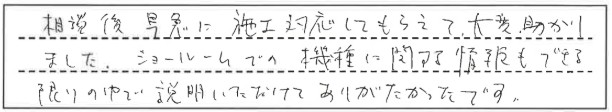 相談後早急に施工対応してもらえて、大変助かり
ました。ショールームでの機種に関する情報もできる
限りの中で説明いただけてありがたかったです。